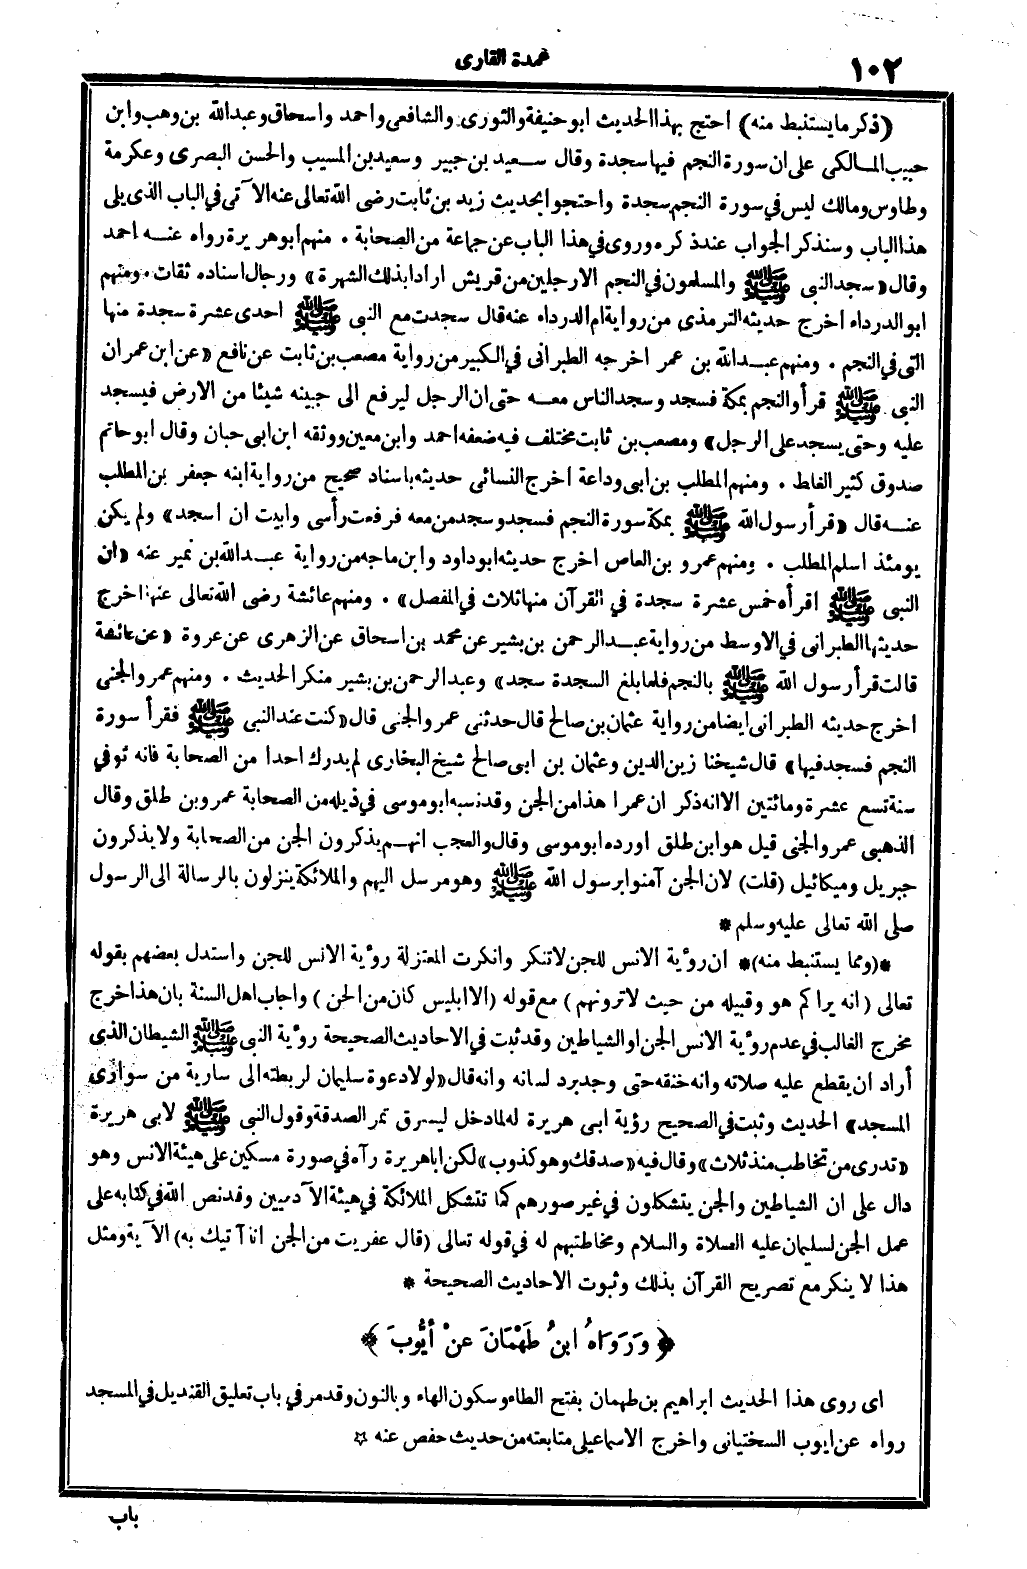 ١٠٢
عمدة القارى
(ذكر ما يستنبط منه) احتج بهذا الحديث ابو حنيفة والثورى والشافعى واحمد واسحاق وعبد الله بن وهب وابن
حبيب المالكى على ان سورة النجم فيها سجدة وقال سعيد بن جبير وسعيد بن المسيب والحسن البصرى وعكرمة
وطاوس ومالك ليس فى سورة النجم سجدة واحتجوا بحديث زيد بن ثابت رضى الله تعالى عنه الآتى فى الباب الذى يلى
هذا الباب وسنذكر الجواب عند ذكره وروى فى هذا الباب عن جماعة من الصحابة . منهم ابو هريرة رواه عنه احمد
وقال «سجد النبى ﷺ والمسلمون فى النجم الا رجلين من قريش ارادا بذلك الشهرة» ورجال اسناده ثقات . ومنهم
ابو الدرداء اخرج حديثه الترمذى من رواية ام الدرداء عنه قال سجدت مع النبى ﷺ احدى عشرة سجدة منها
التى فى النجم . ومنهم عبد الله بن عمر اخرجه الطبرانى فى الكبير من رواية مصعب بن ثابت عن نافع «عن ابن عمر ان
النبى ﷺ قرأ والنجم بمكة فسجد وسجد الناس معه حتى ان الرجل ليرفع الى جبينه شيئا من الارض فيسجد
عليه وحتى يسجد على الرجل» ومصعب بن ثابت مختلف فيه ضعفه احمد وابن معين ووثقه ابن ابى حبان وقال ابو حاتم
صدوق كثير الغلط . ومنهم المطلب بن ابى وداعة اخرج النسائى حديثه باسناد صحيح من رواية ابنه جعفر بن المطلب
عنه قال «قرأ رسول الله ﷺ بمكة سورة النجم فسجد وسجد من معه فرفعت رأسى وابيت ان اسجد» ولم يكن
يومئذ اسلم المطلب . ومنهم عمرو بن العاص اخرج حديثه ابو داود وابن ماجه من رواية عبد الله بن نمير عنه «ان
النبى ﷺ اقرأه خمس عشرة سجدة في القرآن منها ثلاث فى المفصل» . ومنهم عائشة رضى الله تعالى عنها اخرج
حديثها الطبرانى فى الاوسط من رواية عبد الرحمن بن بشير عن محمد بن اسحاق عن الزهرى عن عروة «عن عائشة
قالت قرأ رسول الله ﷺ بالنجم فلما بلغ السجدة سجد» وعبد الرحمن بن بشير منكر الحديث . ومنهم عمرو الجنى
اخرج حديثه الطبرانى ايضا من رواية عثمان بن صالح قال حدثنى عمرو الجنى قال «كنت عند النبى ﷺ فقرأ سورة
النجم فسجد فيها» قال شيخنا زين الدين وعثمان بن ابى صالح شيخ البخارى لم يدرك احدا من الصحابة فانه توفي
سنة تسع عشرة ومائتين الا انه ذكر ان عمرا هذا من الجن وقد نسبه ابو موسى فى ذيله من الصحابة عمرو بن طلق وقال
الذهبى عمرو الجنى قيل هو ابن طلق اورده ابو موسى وقال والعجب انهم يذكرون الجن من الصحابة ولا يذكرون
جبريل وميكائيل (قلت) لان الجن آمنوا برسول الله ﷺ وهو مرسل اليهم والملائكة ينزلون بالرسالة الى الرسول
صلى الله تعالى عليه وسلم *
*(ومما يستنبط منه)* ان رؤية الانس للجن لا تنكر وانكرت المعتزلة رؤية الانس للجن واستدل بعضهم بقوله
تعالى (انه يراكم هو وقبيله من حيث لا ترونهم) مع قوله (الا ابليس كان من الجن) واجاب اهل السنة بان هذا خرج
مخرج الغالب فى عدم رؤية الانس الجن او الشياطين وقد ثبت فى الاحاديث الصحيحة رؤية النبى ﷺ الشيطان الذى
أراد ان يقطع عليه صلاته وانه خنقه حتى وجد برد لسانه وانه قال «لولا دعوة سليمان لربطته الى سارية من سوارى
المسجد» الحديث وثبت فى الصحيح رؤية ابى هريرة له لما دخل ليسرق تمر الصدقة وقول النبى ﷺ لابى هريرة
«تدرى من تخاطب منذ ثلاث» وقال فيه «صدقك وهو كذوب» لكن ابا هريرة رآه فى صورة مسكين على هيئة الانس وهو
دال على ان الشياطين والجن يتشكلون فى غير صورهم كما تتشكل الملائكة فى هيئة الآدميين وقد نص الله فى كتابه على
عمل الجن لسليمان عليه الصلاة والسلام ومخاطبتهم له فى قوله تعالى (قال عفريت من الجن انا آتيك به) الآية ومثل
هذا لا ينكر مع تصريح القرآن بذلك وثبوت الاحاديث الصحيحة *
﴿ وَرَوَاهُ ابنُ طَهْمَانَ عنْ أَيُّوبَ ﴾
اى روى هذا الحديث ابراهيم بن طهمان بفتح الطاء وسكون الهاء وبالنون وقد مر فى باب تعليق القنديل فى المسجد
رواه عن ايوب السختيانى واخرج الاسماعيلى متابعته من حديث حفص عنه ☆
باب